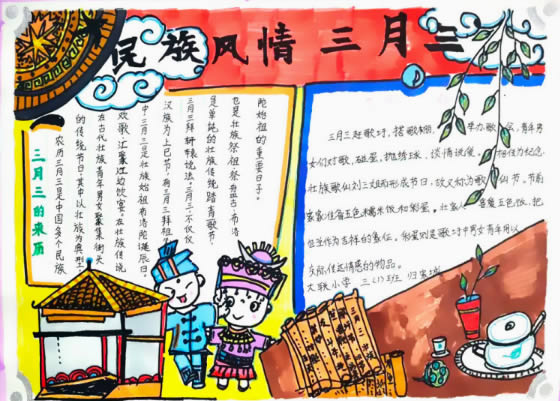 民族风情 三月三
三月三的来历
农历三月三是中国多个民族
的传统节日,其中以壮族为典型。
在古代壮族青年男女聚集街头
欢歌、汇聚江边饮宴。在壮族传说
中,三月三是壮族始祖布洛陀诞辰日。
汉族为上巳节。三月三拜祖
三月三拜轩辕说法。三月三不仅仅
是单纯的壮族传统踏青歌节,
也是壮族祭祖、祭盘古、布洛
陀始祖的重要日子。
三月三赶歌圩,搭歌棚,举办歌会,青年男
女们对歌、碰蛋、抛绣球、谈情说爱。相传为纪念
壮族歌仙刘三姐形成节日,故又称为歌仙节。节前
家家准备五色糯米饭和彩蛋。壮家人喜爱五色饭,把
它当作吉祥的象征。彩蛋则是歌圩中男女青年用以
交际、传达情感的物品。
大联小学 三(1)班